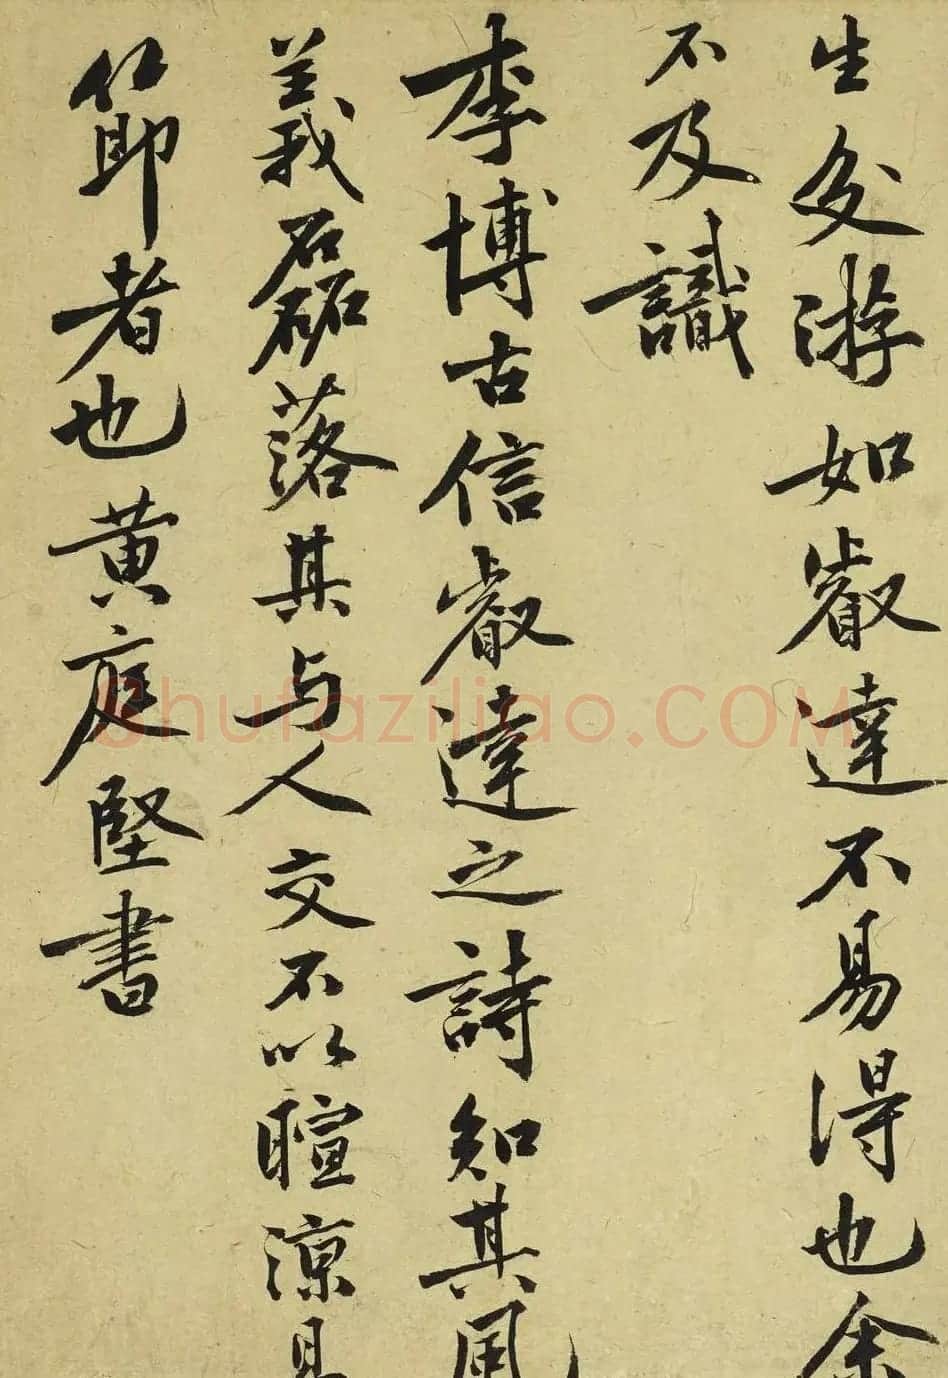 生交游如叡達不易得也余
不及識
李博古信叡達之詩知其風
義磊落其与人交不以暄凉易
節者也黄庭堅書
Shufaziliao.COM